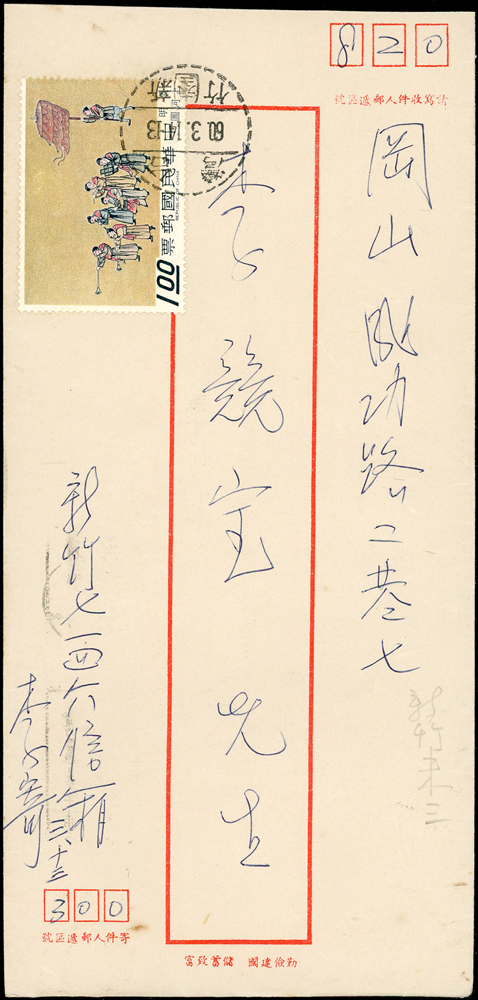 820
請寫收件人郵遞區號
岡山成功路二巷七
李競寶先生
新竹七百六信箱
李寄
三、十三
300
寄件人郵遞區號
勤儉建國 儲蓄致富
中華民國郵票
REPUBLIC OF CHINA
1.00
新竹
60.3.14.13
新竹未三